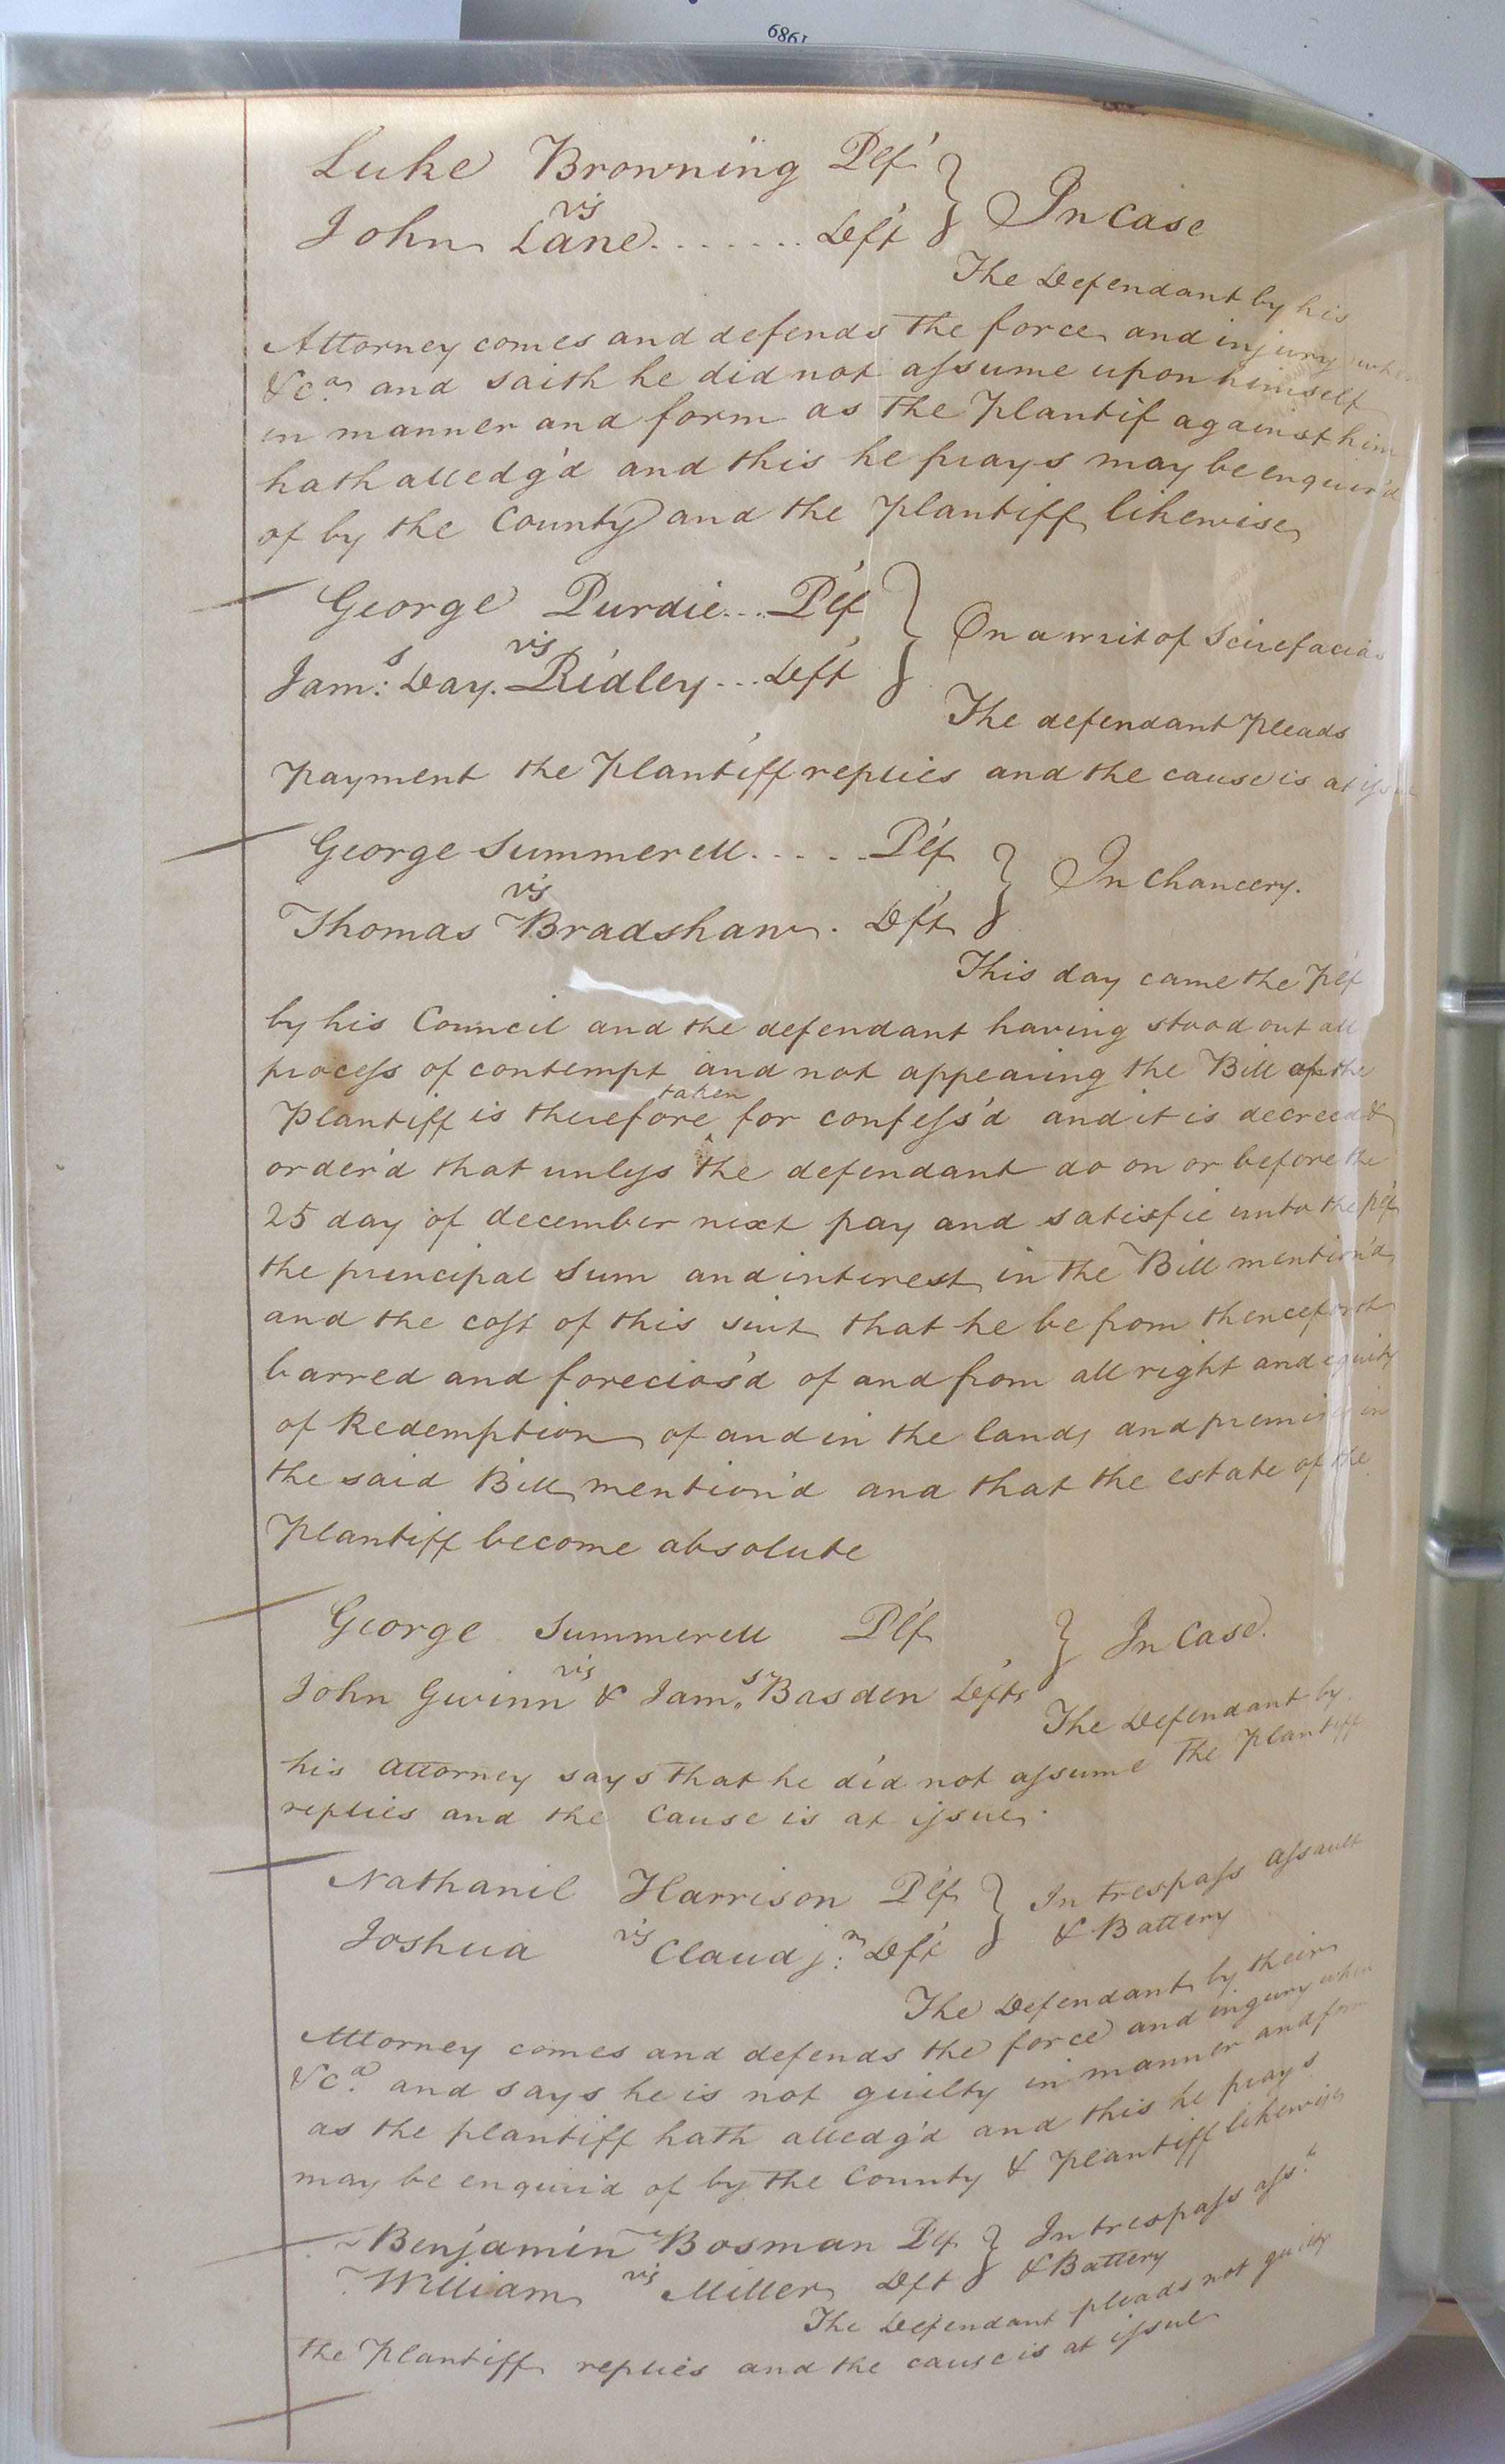 6861
Luke Browning Plf'
vs
John Lane....... Deft } In Case
The Defendant by his
Attorney comes and defends the force and injury when
&ca and saith he did not assume upon himself
in manner and form as the Plantif against him
hath alledg'd and this he prays may be enquir'd
of by the County and the Plantiff likewise
George Purdie... Plf
vs
Jam:s Day. Ridley... Deft } On a writ of Scirefacias
The defendant pleads
payment the Plantiff replies and the cause is at issue
George Summerell..... Plf
vs
Thomas Bradshaw. Deft } In Chancery.
This day came the Plf
by his Council and the defendant having stood out all
process of contempt and not appearing the Bill of the
taken
Plantiff is therefore ^ for confess'd and it is decreed &
order'd that unless the defendant do on or before the
25 day of december next pay and satisfie unto the plf
the principal Sum and interest in the Bill mention'd
and the cost of this suit that he be from thenceforth
barred and foreclos'd of and from all right and equity
of Redemption of and in the lands and premises in
the said Bill mention'd and that the estate of the
Plantiff become absolute
George Summerell Plf
vs
John Gwinn & Jam.s Basden Defts } In Case.
The Defendant by
his Attorney says that he did not assume the Plantiff
replies and the Cause is at issue.
Nathanil Harrison Plf } In trespass assault
Joshua vs Claud j:r Deft & Battery
The Defendant by their
Attorney comes and defends the force and ingury when
&c.a and says he is not guilty in manner and form
as the plantiff hath alledg'd and this he prays
may be enquir'd of by the County & Plantiff likewise
Benjamin Bosman Plf } In trespass ass.t
William vs Miller Deft & Battery
The Defendant pleads not guilty
the Plantiff replies and the cause is at issue